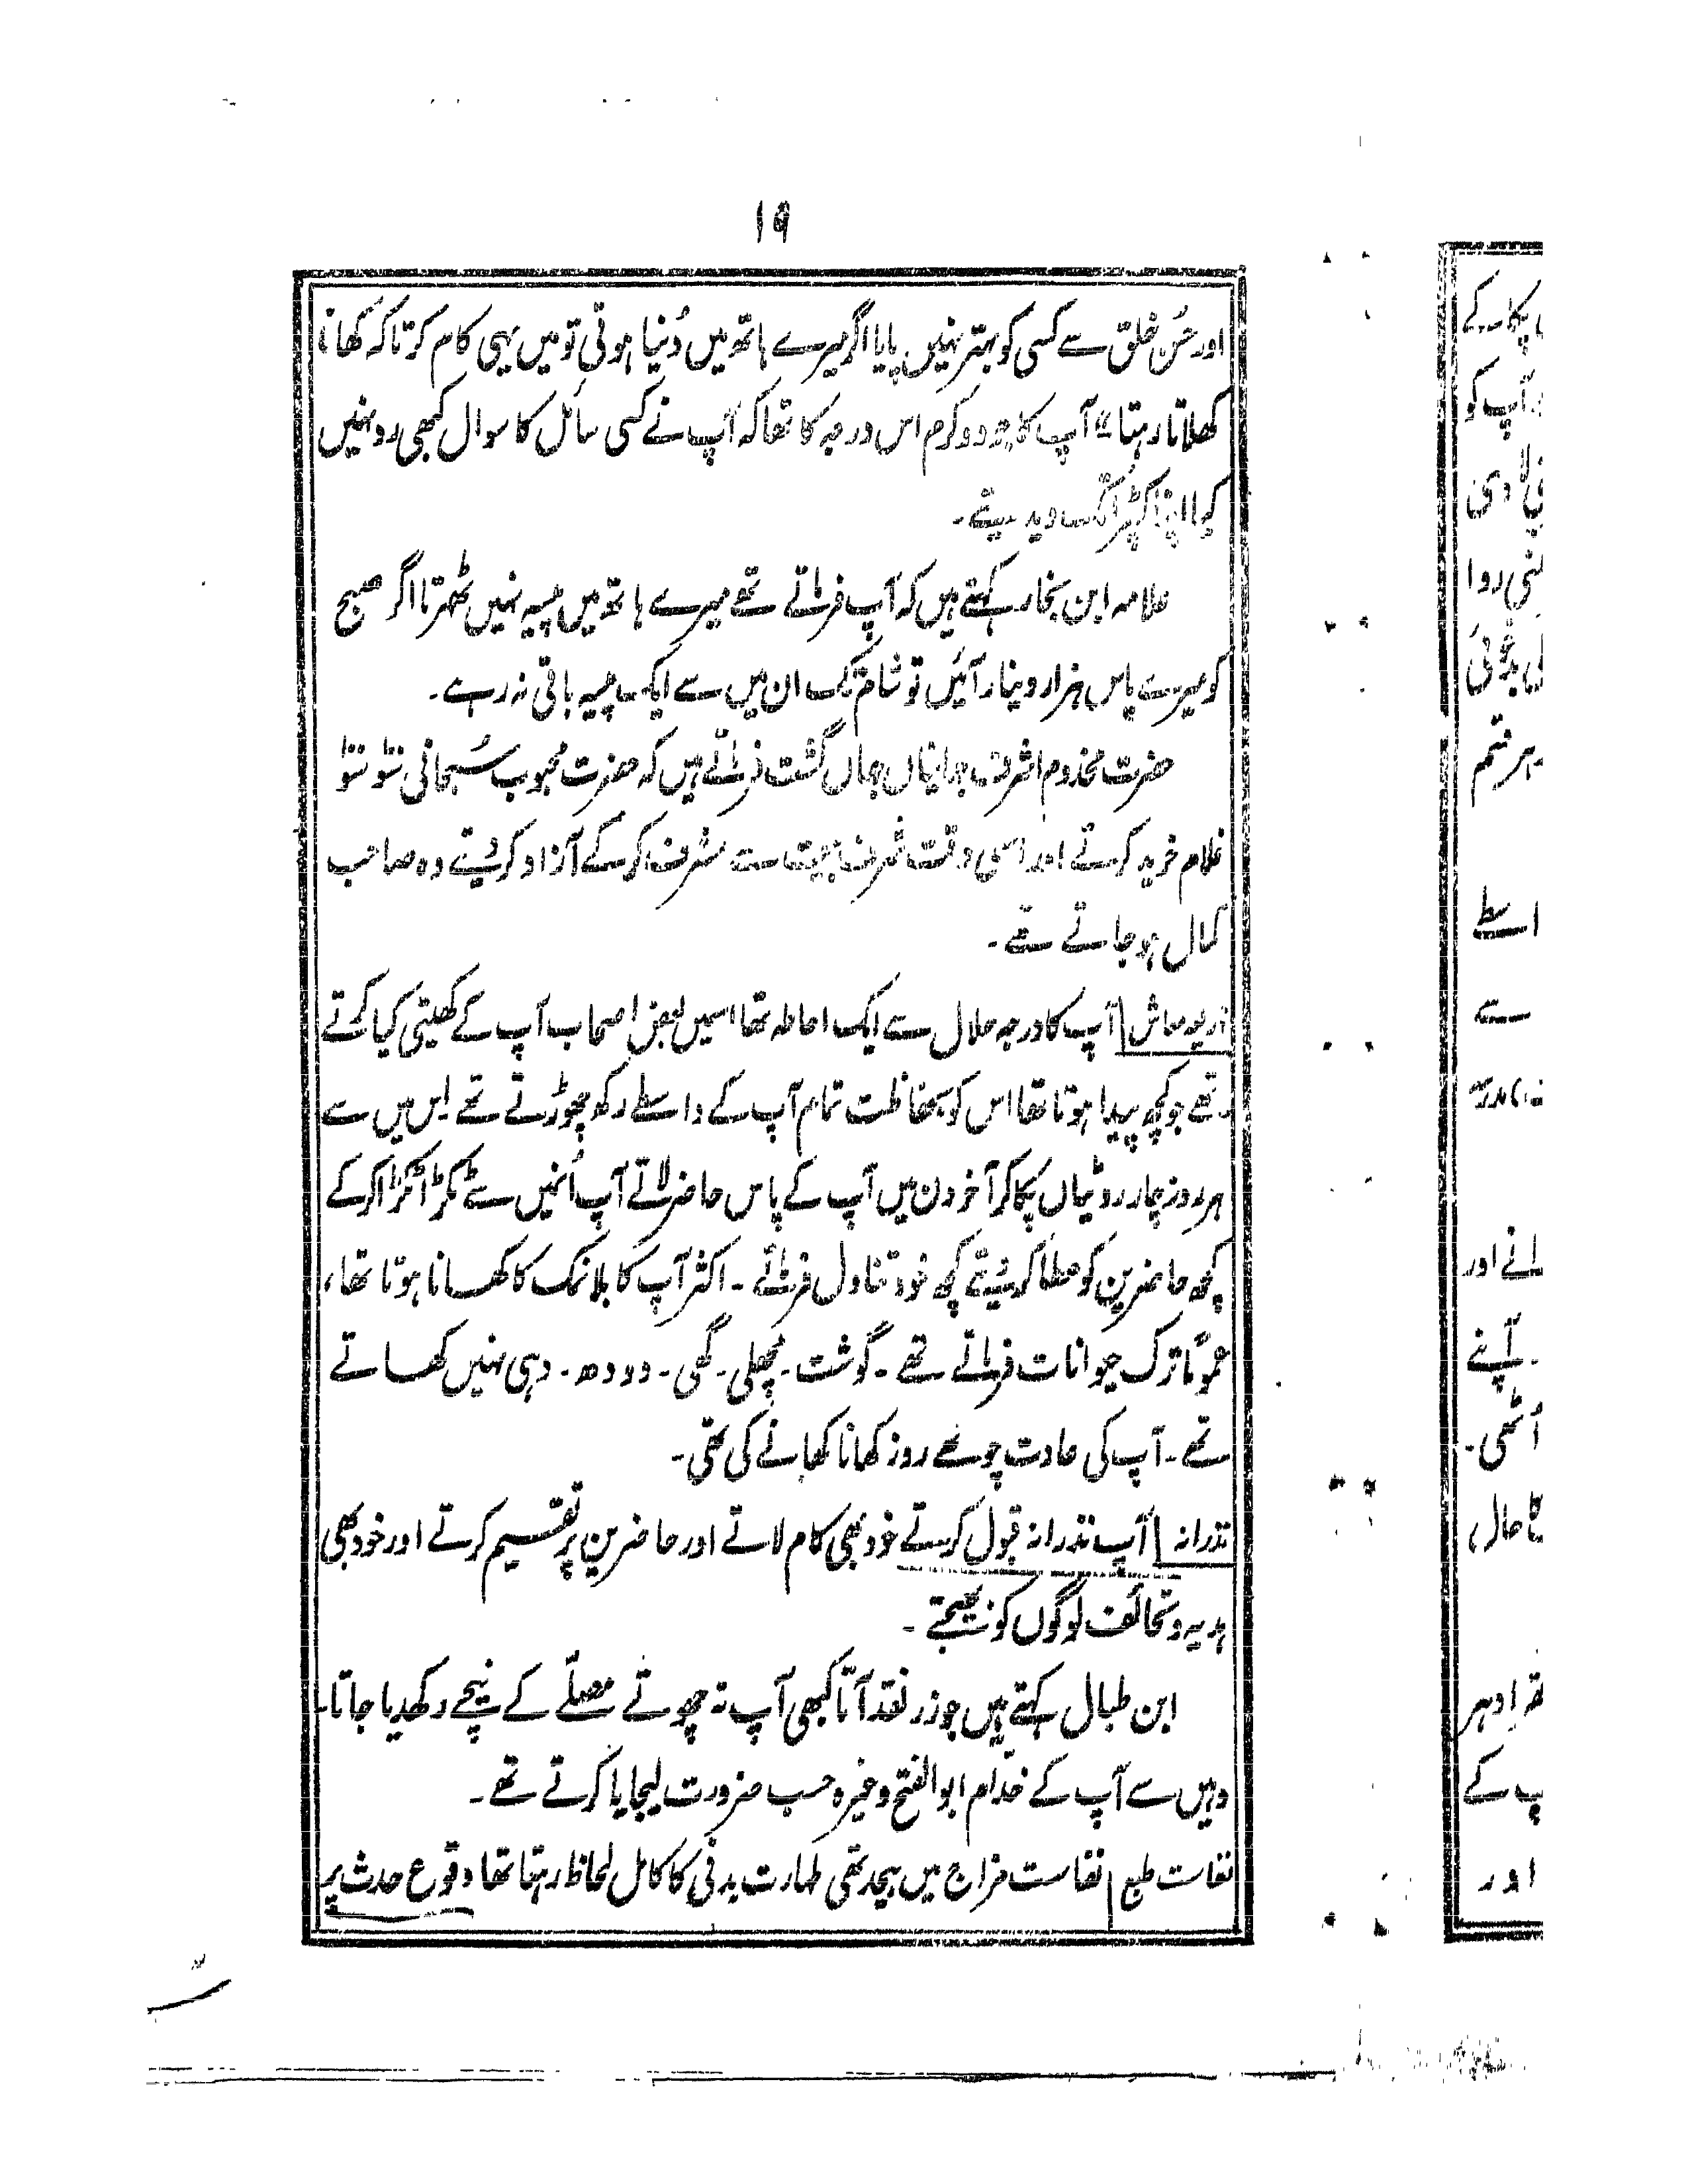 ۱۹
اور حُسن خلق سے کسی کو بہتر نہیں پایا اگر میرے ہاتھ میں دُنیا ہوتی تو میں یہی کام کرتا کہ کھانا
کھلاتا رہتا" آپ کا جود و کرم اس درجہ کا تھا کہ آپ نے کسی سائل کا سوال کبھی رد نہیں
کیا اپنا کپڑا تک دیدیتے۔
علامہ ابن نجار کہتے ہیں کہ آپ فرماتے تھے میرے ہاتھ میں پیسہ نہیں ٹھرتا اگر صبح
کو میرے پاس ہزار دینار آئیں تو شام تک ان میں سے ایک پیسہ باقی نہ رہے۔
حضرت مخدوم اشرف جہانیاں جہاں گشت فرماتے ہیں کہ حضرت محبوب سُبحانی سَو سَو
غلام خرید کرتے اور اسی وقت شرف بیعت سے مشرف کر کے آزاد کر دیتے وہ صاحب
کمال ہو جاتے تھے۔
ذریعہ معاش | آپ کا درجہ حلال سے ایک احاطہ تھا اسمیں بعض اصحاب آپ کے کھیتی کیا کرتے
تھے جو کچھ پیدا ہوتا تھا اس کو بحفاظت تمام آپ کے واسطے رکھ چھوڑتے تھے اس میں سے
ہر روز چار روٹیاں پکا کر آخر دن میں آپ کے پاس حاضر لاتے آپ اُنمیں سے ٹکڑا ٹکڑا کر کے
کچھ حاضرین کو عطا کر دیتے کچھ خود تناول فرماتے۔ اکثر آپ کا بلا نمک کا کھانا ہوتا تھا،
عموًما ترک حیوانات فرماتے تھے۔ گوشت۔ مچھلی۔ گھی۔ دودھ۔ دہی نہیں کھاتے
تھے۔ آپ کی عادت چوتھے روز کھانا کھانے کی تھی۔
نذرانہ | آپ نذرانہ قبول کرتے خود بھی کام لاتے اور حاضرین پر تقسیم کرتے اور خود بھی
ہدیہ و تحائف لوگوں کو بھیجتے۔
ابن طبال کہتے ہیں جو زر نقد آتا کبھی آپ نہ چھوتے مصلّے کے نیچے رکھدیا جاتا۔
وہیں سے آپ کے خدّام ابو الفتح وغیرہ حسب ضرورت لیجایا کرتے تھے۔
نفاست طبع | نفاست مزاج میں بیحد تھی طہارت بدنی کا کامل لحاظ رہتا تھا وقوع حدث پر
آپ کو
دی
روا
ہر قسم
اسطے
سے
اور
آپنے
اُٹھی۔
حال،
ادہر
کے
اور